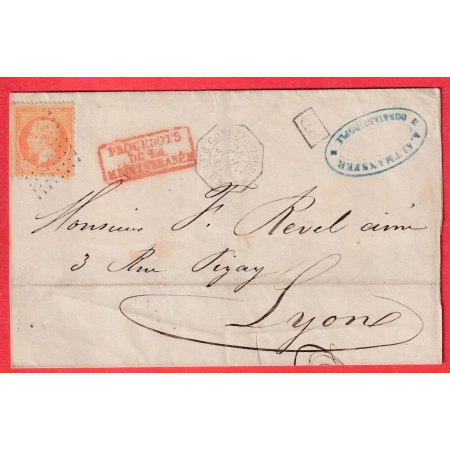 PAQUEBOTS
DE LA
MÉDITERRANÉE
A. ALTMANSTER
CONSTANTINOPLE
P.D.
Monsieur F. Revel ainé
3 Rue Pizay
Lyon